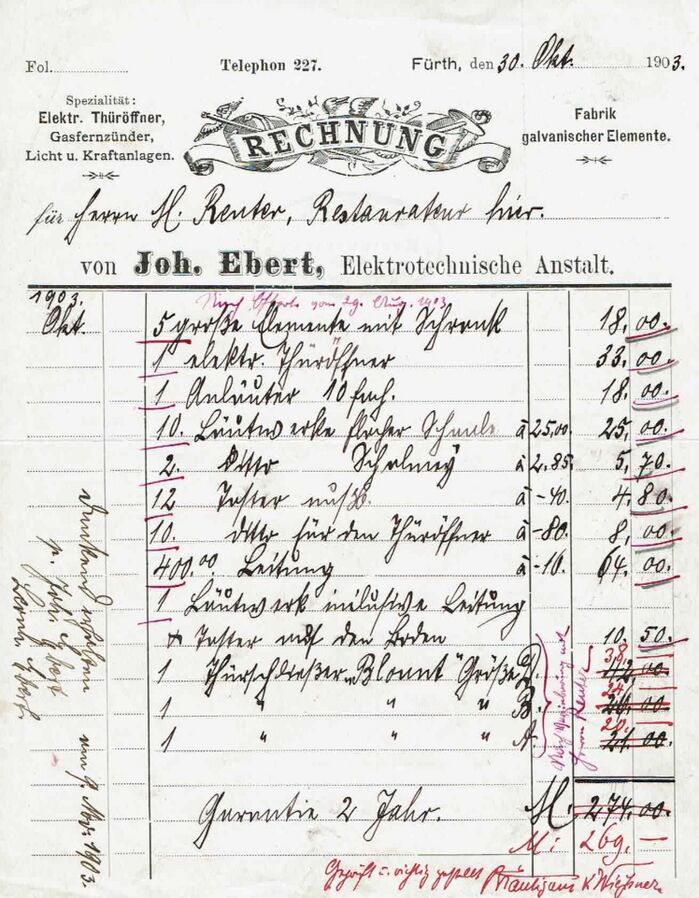 Fol. Telephon 227. Fürth, den 30. Okt. 1903.
Spezialität:
Elektr. Thüröffner,
Gasfernzünder,
Licht u. Kraftanlagen.
RECHNUNG
Fabrik
galvanischer Elemente.
für Herrn H. Reuter, Restaurateur hier.
von Joh. Ebert, Elektrotechnische Anstalt.
1903.
Nach Offerte vom 29. Aug. 1903
Okt. 5 große Elemente mit Schrank 18.00.
1 elektr. Thüröffner 33.00.
1 Anläuter 10 fach. 18.00.
10. Läutwerke flacher Schaale à 25,00. 25,00.
2. ditto Schalmey à 2.85. 5,70.
12 Taster à -40. 4.80.
10. ditto für den Thüröffner à -80. 8,00.
400,00 Leitung à -16. 64.00.
1 Läutwerk inklusive Leitung
& Taster auf den Boden 10.50.
38.
1 Thürschließer "Blount" Größe D. 42 00
24
1 " " " B. 26.00
20.
1 " " " A. 21 00
Herrn Reuter
Garantie 2 Jahr. M: 274.00.
M: 269.—
Geprüft u. richtig gestellt
Dankend erhalten am 9. Nov. 1903.
p. Joh. Ebert
Ebert